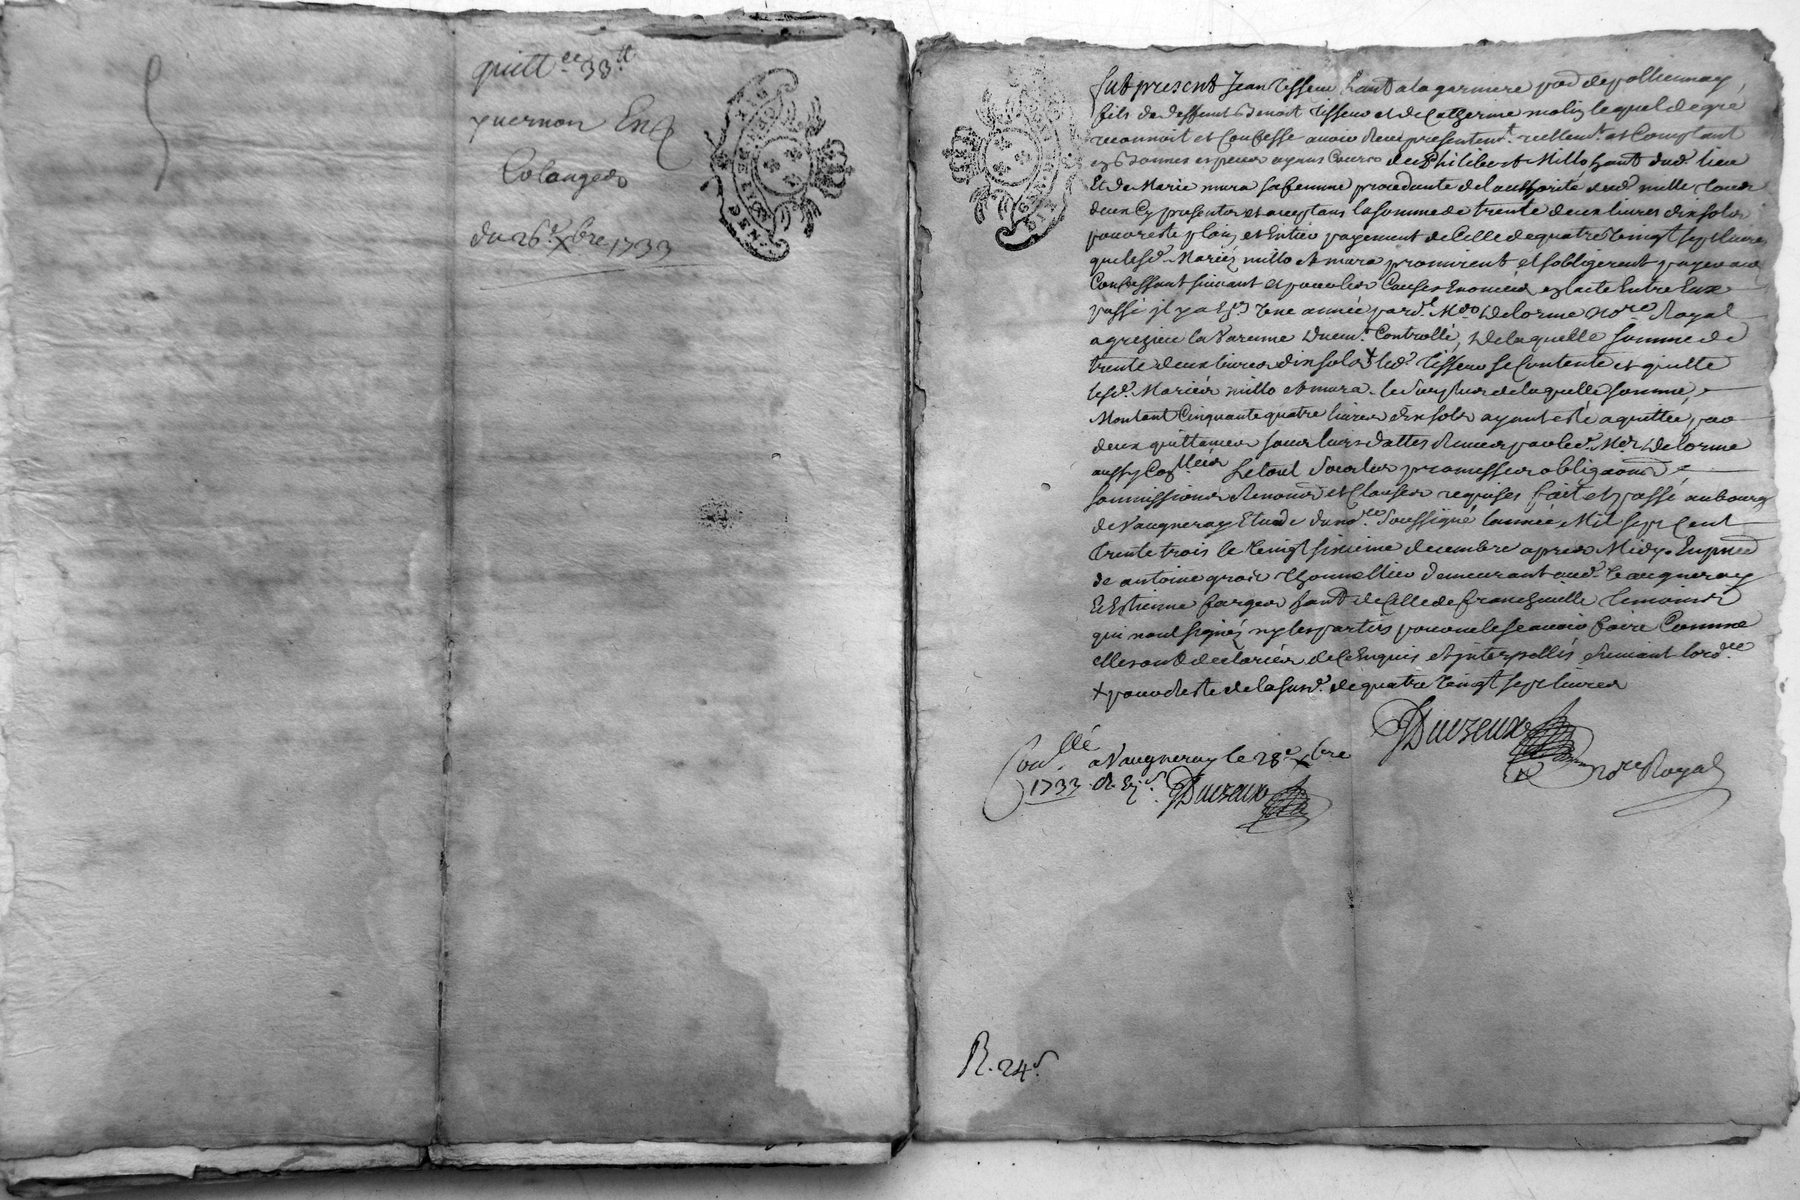 quitt.ce 33 tt
yvernon En
Colanges
du 26e Xbre 1733
GENERALITE
fut present Jean Tisseur habt a la garniere par de pollionnay
fils de deffunt Benoit Tisseur et de Catherine molin lequel de gré
reconnoit et Confesse avoir Receu presentent reellemt et Comptant
en bonnes especes ayans Cours de Philibert Millo habt dud lieu
Et de Marie mura sa femme procedante de l'authorité dud millo tous
deux Cy presents et acceptans la somme de trente deux livres dix sols
pour reste plein et Entier payement de Celle de quatre vingt sept livres
que lesd. Mariéz millo et mura promirent et sobligerent payer au
Confessant suivant et pour les Causes Enoncées en lacte Entre Eux
passé il y a année pard. Me Delorme nore Royal
a grezieu la Varenne Duemt Controllé, De laquelle somme de
trente deux livres dix sols + led. Tisseur se Contente et quitte
lesd. Mariés millo et mura. le surplus de laquelle somme
Montant Cinquante quatre livres dix sols ayant esté aquittée par
deux quittances sous leurs dattes Receues par led. Me Delorme
aussy Conllées Le tout sous les promesses obligaons
soumissions Renoncs et Clauses requises fait et passé au bourg
de Vaugneray Etude du nore soussigné lannée Mil sept Cent
trente trois le vingt sixieme decembre apres Midy. En pnce
de antoine Thonnellier demeurant aud. Vaugneray
Et Estienne fargeres habt de Celle de francheville Temoins
qui n'ont signéz ny les parties pour ne le scavoir faire Comme
elles ont declarées de Ce Enquis et Interpellés suivant lordce
+ pour Reste de la susd. de quatre vingt sept livres
JDuvzeux
nore Royal
Conllé a Vaugneray le 28e Xbre
1733. R. JDuvzeux
R. 24s